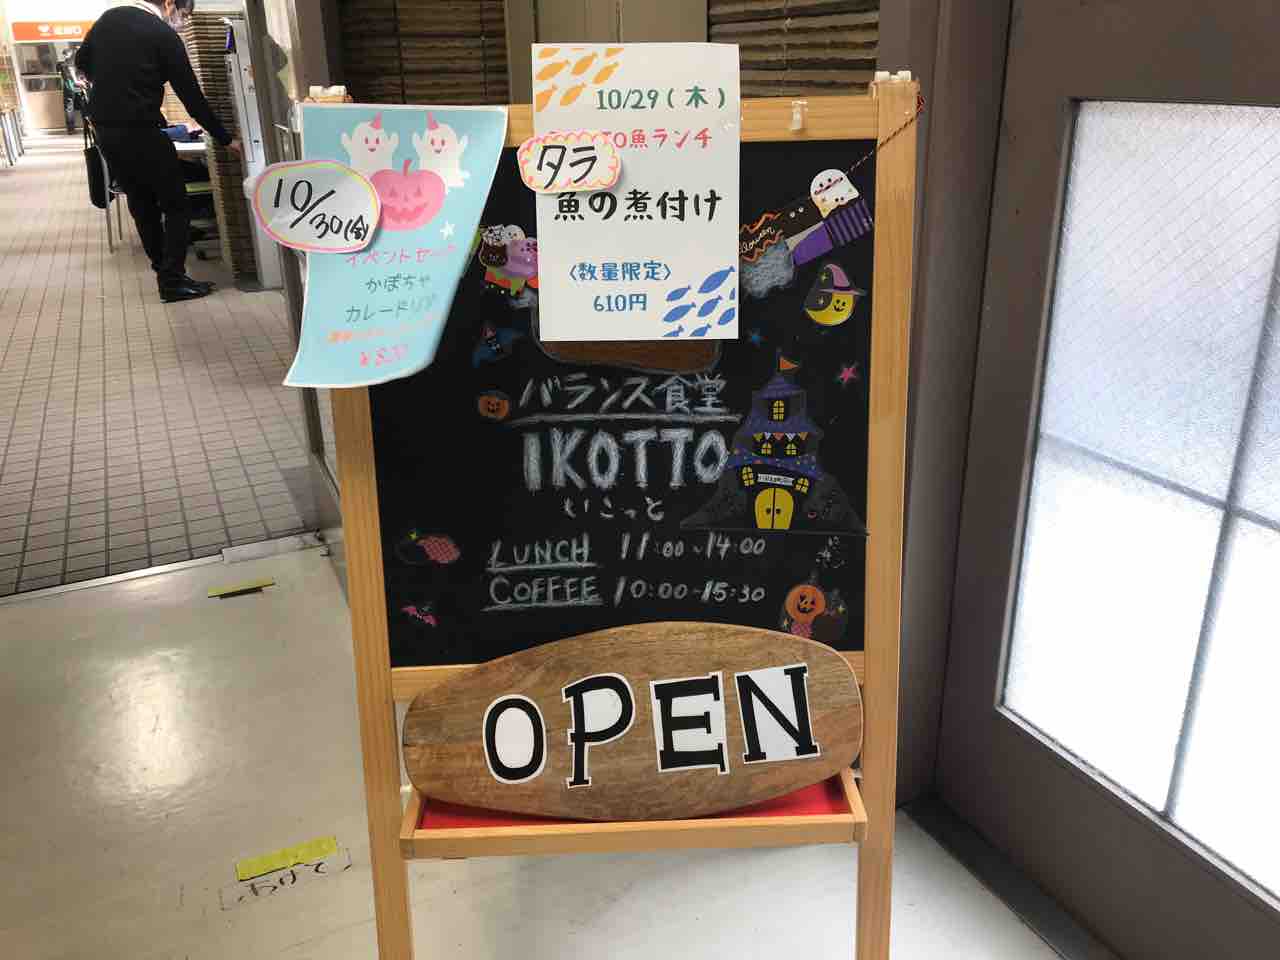 10/29(木)
TO魚ランチ
タラ
魚の煮付け
〈数量限定〉
610円
10/30(金)
イベントセ
かぼちゃ
カレードリア
バランス食堂
IKOTTO
いこっと
LUNCH 11:00~14:00
COFFEE 10:00~15:30
OPEN
あけて